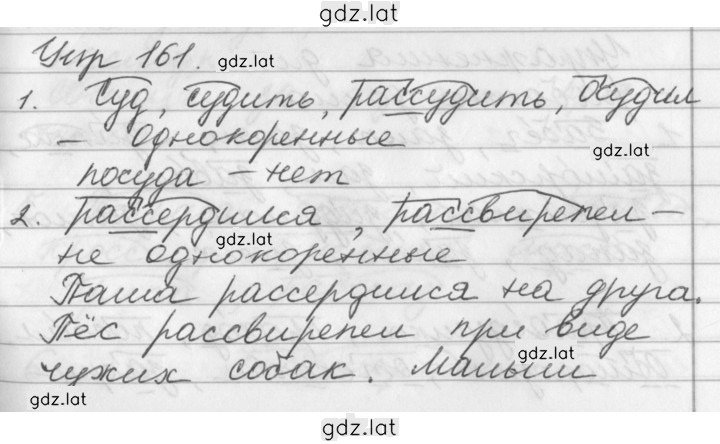 gdz.lat
Упр 161. gdz.lat
1. Суд, судить, рассудить, осудил
– однокоренные gdz.lat
посуда – нет
2. рассердился, рассвирепел –
gdz.lat
не однокоренные
Паша рассердился на друга.
Пёс рассвирепел при виде
gdz.lat
чужих собак. Малыш
gdz.lat
gdz.lat